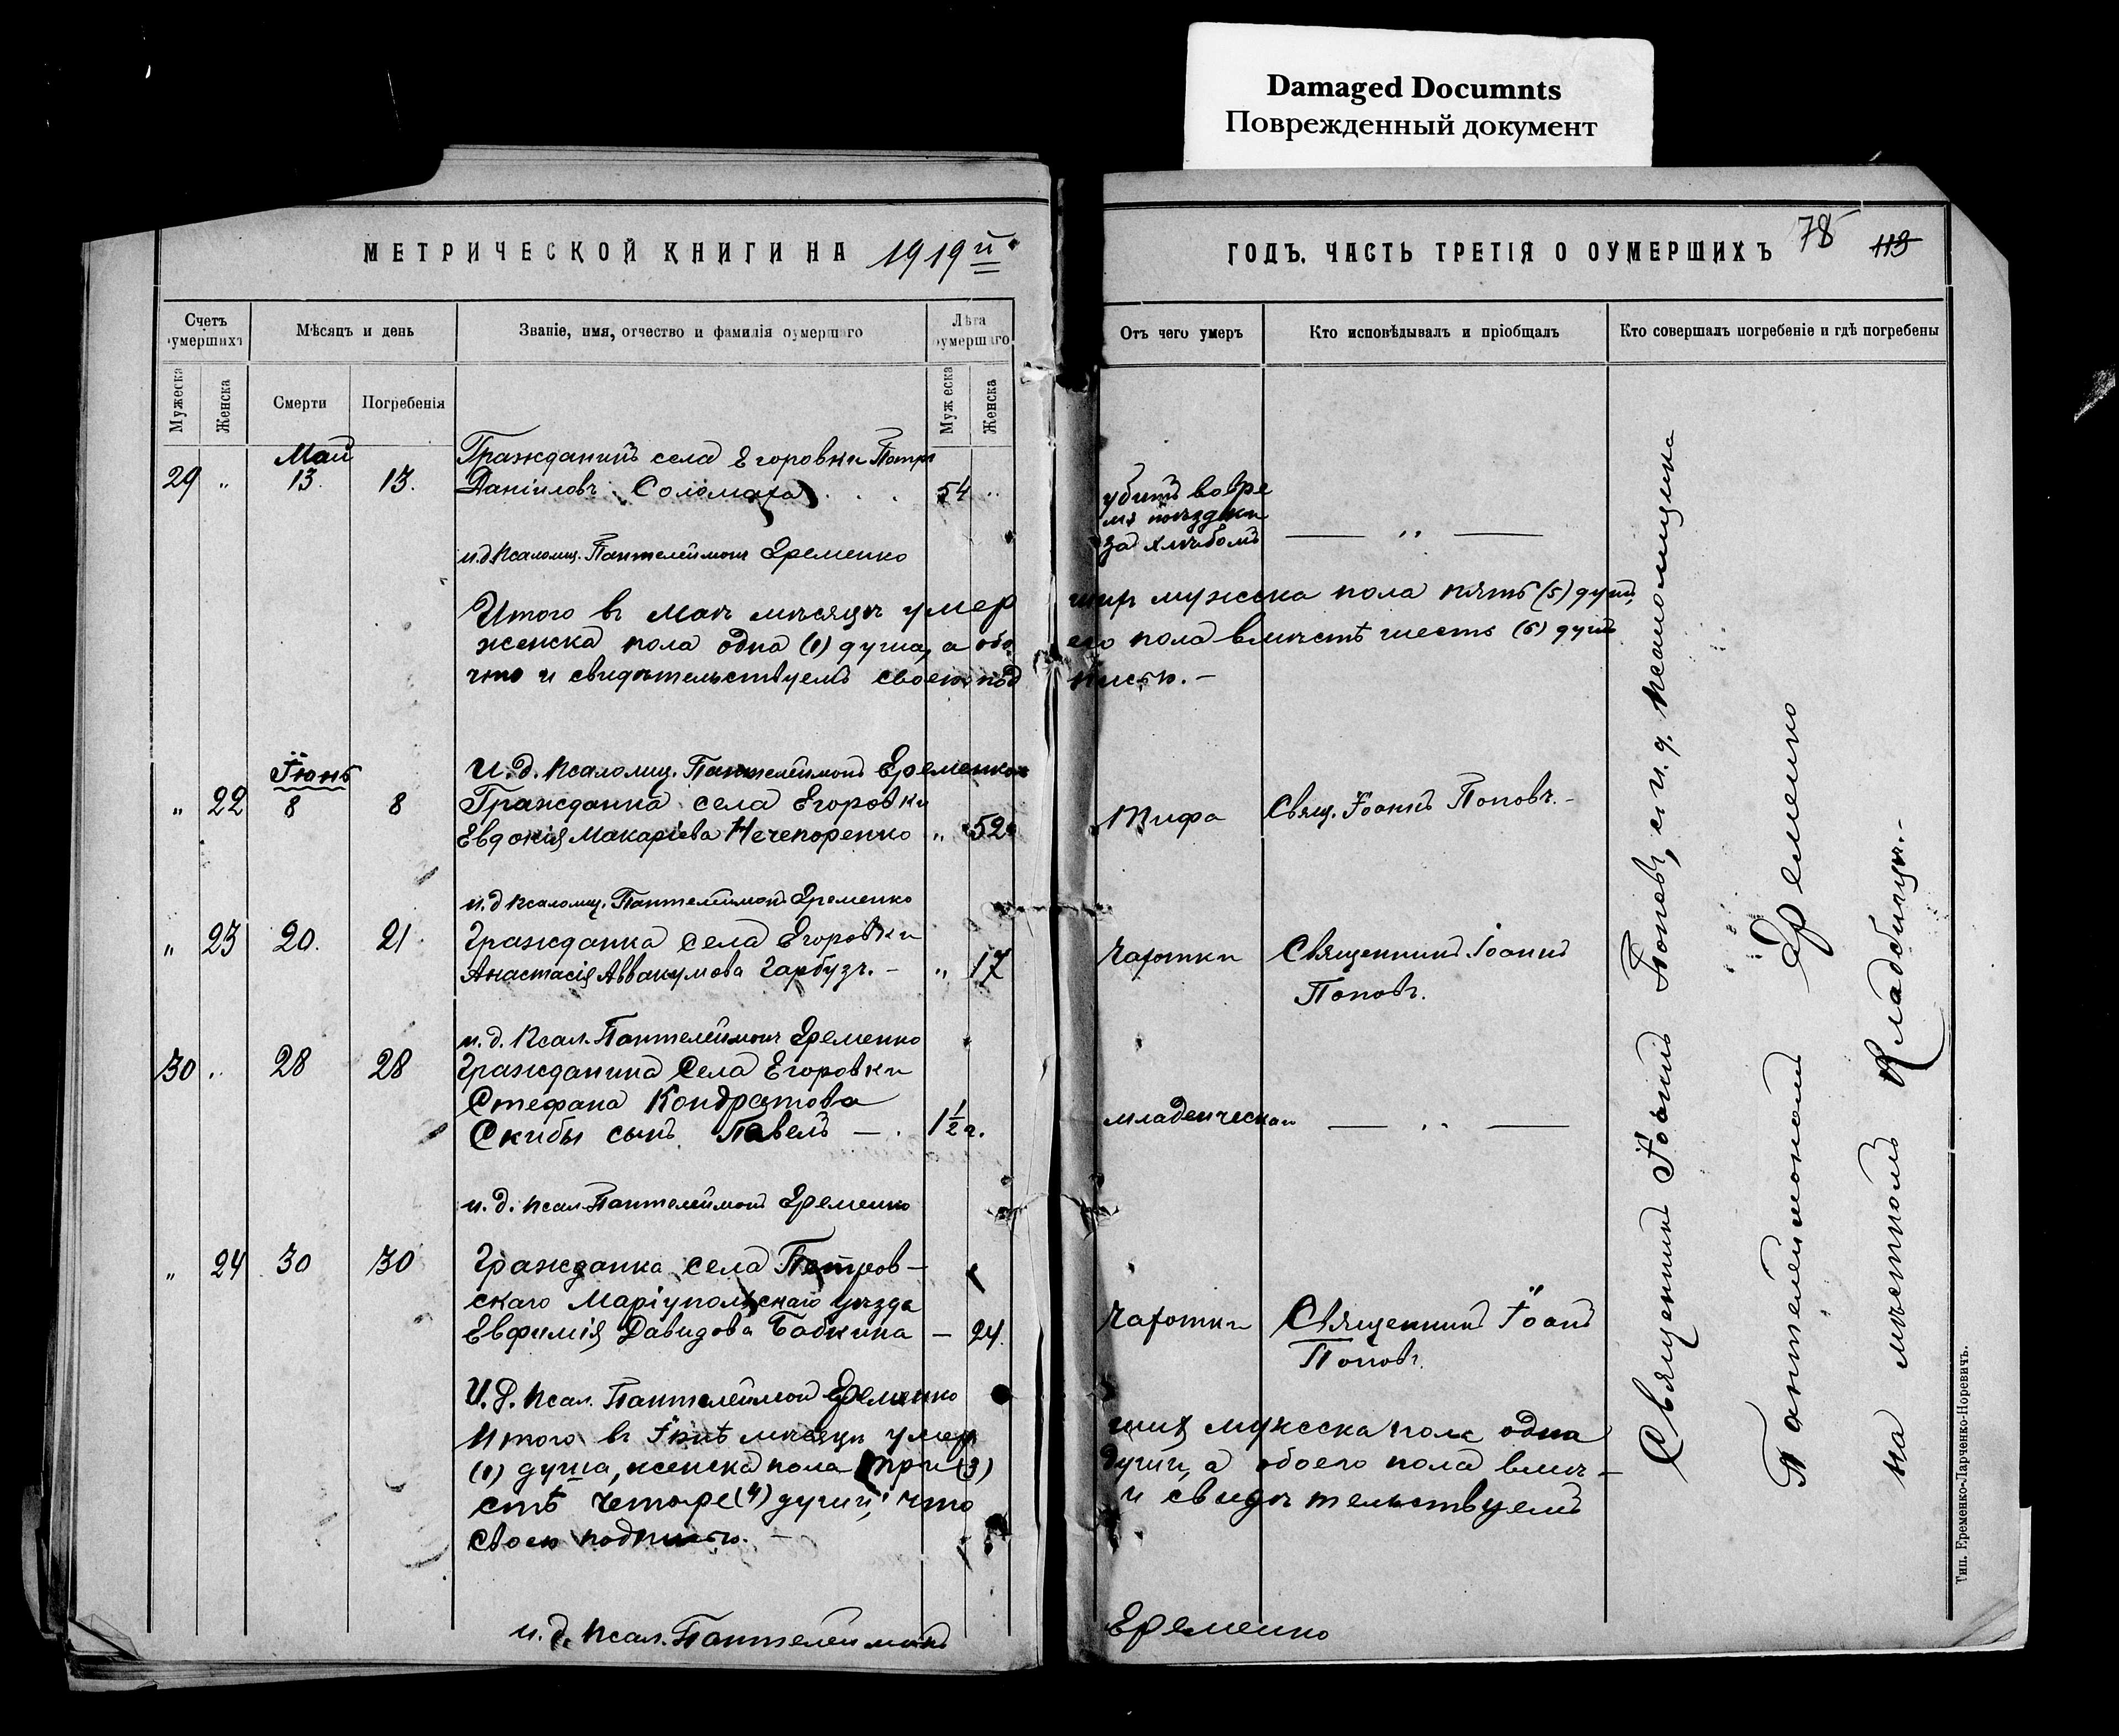 Damaged Documnts
Поврежденный документ
МЕТРИЧЕСКОЙ КНИГИ НА 1919й
ГОДЪ. ЧАСТЬ ТРЕТІЯ О ОУМЕРШИХЪ 78 113
Счетъ умершихъ
Мѣсяцъ и день
Званіе, имя, отчество и фамилія оумершаго
Лѣта оумершаго
Отъ чего умеръ
Кто исповѣдывалъ и пріобщалъ
Кто совершалъ погребеніе и гдѣ погребены
Мужеска
Женска
Смерти
Погребенія
Мужеска
Женска
Май
29 " 13. 13.
Гражданинъ села Егоровки Петръ
Даніиловъ Соломаха 54 "
убитъ вовре
мя поѣздки
за хлѣбомъ — " —
и.д. псаломщ. Пантелеимонъ Еременко
Итого въ маѣ мѣсяцѣ умер
шихъ мужска пола пять (5) душъ,
женска пола одна (1) душа, а обо
его пола вмѣстѣ шесть (6) душъ
что и свидѣтельствуемъ своею под
писью. —
И.д. псаломщ. Пантелеимонъ Еременко
Іюнь
" 22 8 8
Гражданка села Егоровки
Евдокія Макаріева Нечепоренко " 52
Тифа
Свящ. Іоаннъ Поповъ. –
и.д псаломщ. Пантелеимонъ Еременко
" 23 20. 21
Гражданка села Егоровки
Анастасія Аввакумова Гарбузъ. – " 17
Чахотки
Священникъ Іоаннъ
Поповъ.
и.д. псал. Пантелеимонъ Еременко
30 " 28 28
Гражданина Села Егоровки
Стефана Кондратова
Скибы сынъ Павелъ — 1 1/2 г.
младенческая — " —
и.д. псал. Пантелеимонъ Еременко
" 24 30 30
Гражданка села Петров–
скаго Маріупольскаго уѣзда
Евфимія Давидова Бабкина — 24.
Чахотки
Священникъ Іоанъ
Поповъ.
И.д. псал. Пантелеимон Еременко
Итого въ Іюнѣ мѣсяцѣ умер
шихъ мужска пола одна
(1) душа, женска пола три (3)
души, а обоего пола вмѣ–
стѣ четыре (4) души, что
и свидѣтельствуемъ
своею подписью. —
и.д. псал. Пантелеимонъ Еременко
Священникъ Іоаннъ Поповъ, съ и.д. псаломщика
Пантелеимономъ Еременко
на мѣстномъ Кладбищѣ. –
Тип. Еременко-Ларченко-Норевичъ.